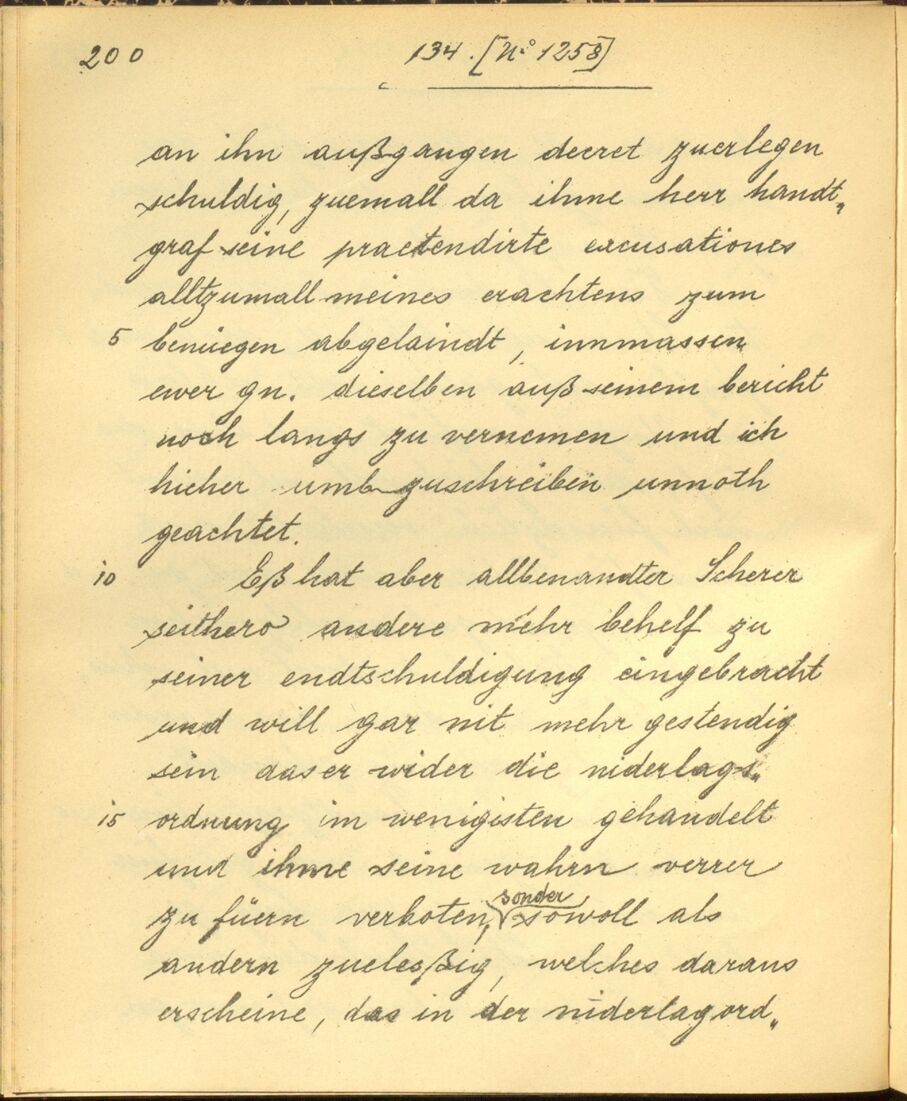 200
134. [N° 1258]
an ihn außgangen decret zuerlegen
schuldig, zuemall da ihme herr handt„
graf seine praetendirte excusationes
alltzumall meines erachtens zum
5 benüegen abgelaindt, innmassen
ewer gn. dieselben auß seinem bericht
noch langs zu vernemen und ich
hieher umb zuschreiben unnoth
geachtet.
10 Eß hat aber allbenandter Scherer
seithero andere mehr behelf zu
seiner endtschuldigung eingebracht
und will gar nit mehr gestendig
sein das er wider die niderlags„
15 ordnung im wenigisten gehandelt
und ihme seine wahrn verrer
sonder
zu füern verboten, sowoll als
andern zueleßig, welches daraus
erscheine, das in der niderlagord„